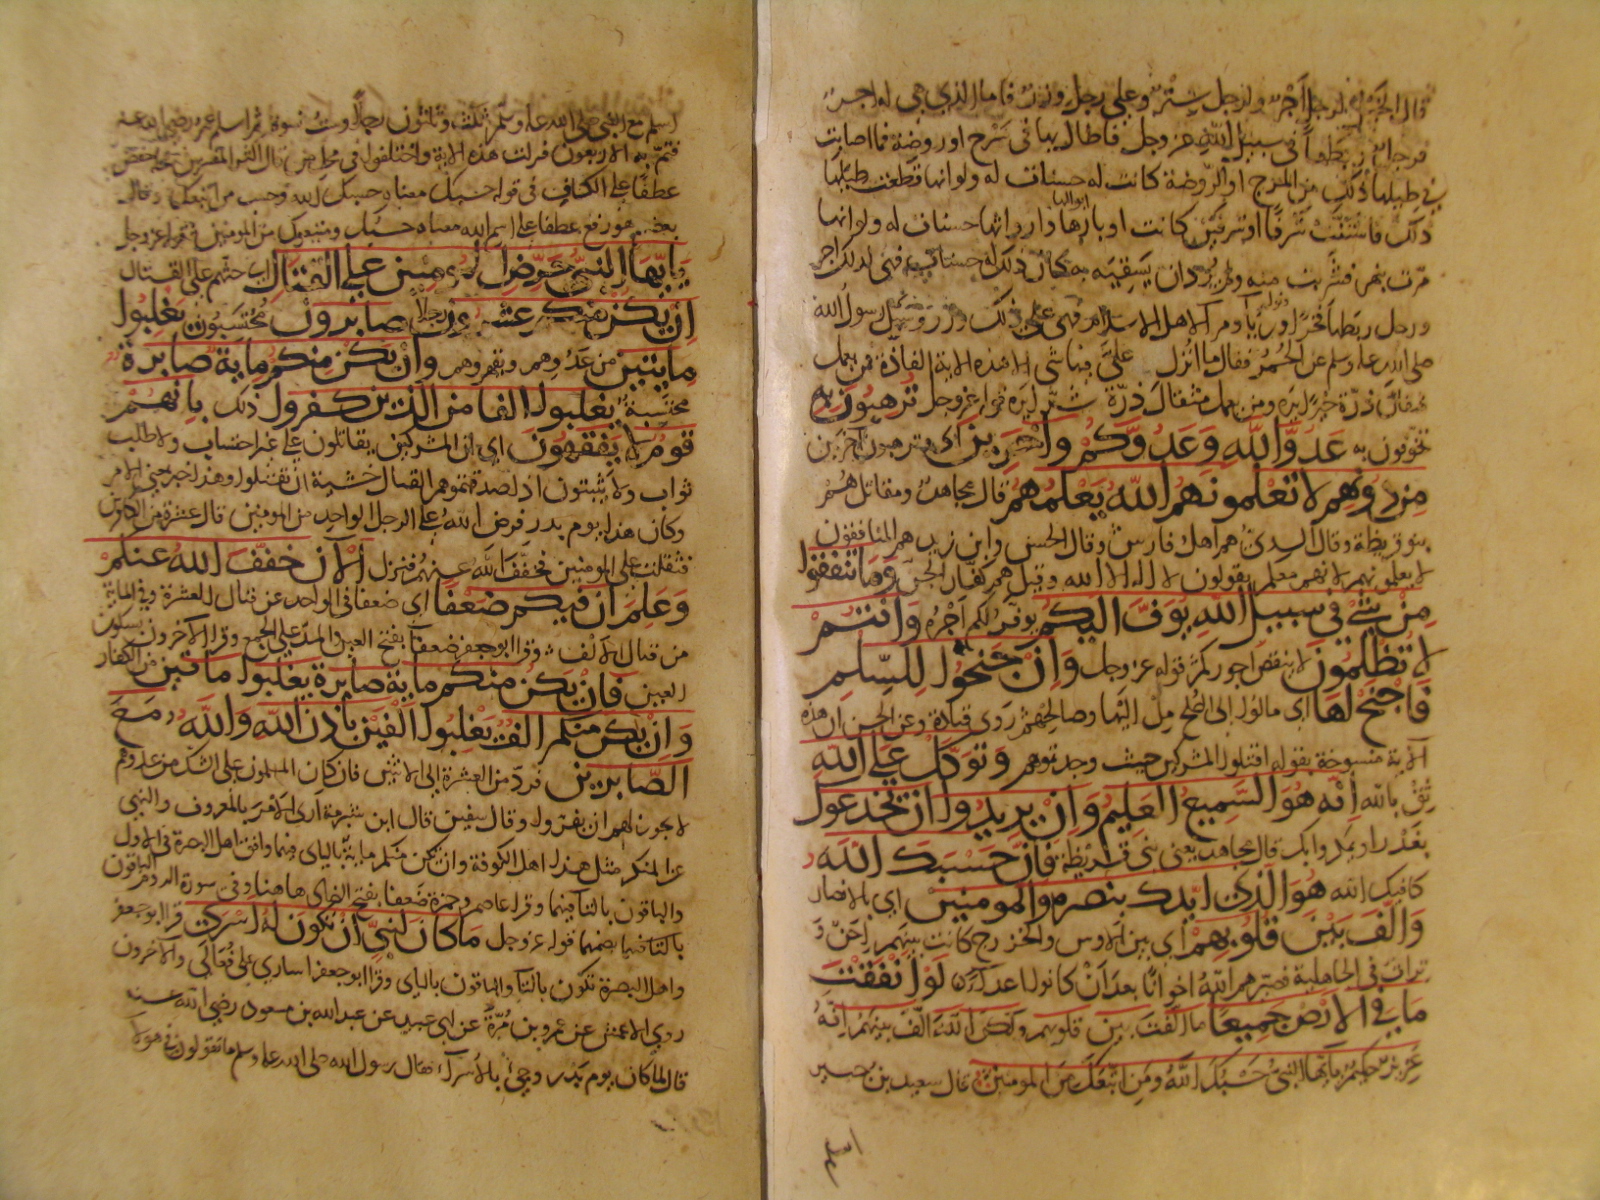 قال الخيل لرجل اجر ولرجل ستر وعلى رجل وزر فاما الذي هي له اجر
فرجل ربطها في سبيل الله عز وجل فاطال لها في مرج او روضة فما اصابت
في طيلها ذلك من المرج او الروضة كانت له حسنات له ولو انها قطعت طيلها
ذلك فاستنت شرفا او شرفين كانت اوبارها ابوالها واروائها حسنات له ولو انها
مرت بنهر فشربت منه ولم يرد ان يسقيه به كان ذلك له حسنات فهي لذلك اجر
ورجل ربطها فخرا ورياء ونواء لاهل الاسلام فهي على ذلك وزر وسيل رسول الله
صلى الله عليه وسلم عن الحمر فقال ما انزل علي فيها شي الا هذه الاية الفاذة فمن يعمل
مثقال ذرة خيرا يره ومن يعمل مثقال ذرة شرا يره قوله عز وجل ترهبون به
تخوفون به عدو الله وعدوكم واخرين اي وترهبون اخرين
من دونهم لا تعلمونهم الله يعلمهم قال مجاهد ومقاتل هم
بنو قريظة وقال السدي هم اهل فارس وقال الحسن وابن زيد هم المنافقون
لا يعلمونهم لانهم معكم يقولون لا اله الا الله وقيل هم كفار الجن وما تنفقوا
من شي في سبيل الله يوف اليكم يوفر لكم اجره وانتم
لا تظلمون لا ينقص اجوركم قوله عز وجل وان جنحوا للسلم
فاجنح لها اي مالوا الى الصلح مل اليها وصالحهم روي قتادة وعن الحسن ان هذه
الاية منسوخة بقوله اقتلوا المشركين حيث وجدتموهم وتوكل على الله
ثق بالله انه هو السميع العليم وان يريدوا ان يخدعوك
يغدروا ويمكروا بك قال مجاهد يعني بني قريظة فان حسبك الله
كافيك الله هو الذي ايدك بنصره والمومنين اي بالانصار
والف بين قلوبهم اي بين الاوس والخزرج كانت بينهم احن و
ترات في الجاهلية فصيرهم الله اخوانا بعد ان كانوا اعداء لو انفقت
ما في الارض جميعا ما الفت بين قلوبهم ولكن الله الف بينهم انه
عزيز حكيم يا ايها النبي حسبك الله ومن اتبعك من المومنين قال سعيد بن جبير
اسلم مع النبي صلى الله عليه وسلم ثلث وثلثون رجلا وست نسوة ثم اسلم عمر رضي الله عنه
فتم به الاربعون فنزلت هذه الاية واختلفوا في محل من قال اكثر المفسرين محله خفض
عطفا على الكاف في قوله حسبك معناه حسبك الله وحسب من اتبعك وقال
بعضهم هو رفع عطفا على اسم الله معناه حسبك ومتبعوك من المومنين قوله عز وجل
يا ايها النبي حرض المومنين على القتال اي حثهم على القتال
ان يكن منكم عشرون رجلا صابرون محتسبون يغلبوا
مايتين من عدوهم ويقهروهم وان يكن منكم ماية صابرة
محتسبة يغلبوا الفا من الذين كفروا ذلك بانهم
قوم لا يفقهون اي ان المشركين يقاتلون على غير احتساب ولا طلب
ثواب ولا يثبتون اذا صدقتموهم القتال خشية ان يقتلوا وهذا خبر بمعنى الامر
وكان هذا يوم بدر فرض الله على الرجل الواحد من المومنين قتال عشرة من الكافرين
فثقلت على المومنين فخفف الله عنهم فنزل الان خفف الله عنكم
وعلم ان فيكم ضعفا اي ضعفا في الواحد عن قتال العشرة وفي الماية
من قتال الالف وقرا ابو جعفر ضعفاء بفتح العين والمد على الجمع وقرا الاخرون بسكون
العين فان يكن منكم ماية صابرة يغلبوا ماتين من الكفار
وان يكن منكم الف يغلبوا الفين باذن الله والله مع
الصابرين فرد من العشرة الى الاثنين فان كان المسلمون على الشطر من عدوهم
لا يجوز لهم ان يفروا وقال سفين قال ابن شبرمة ارى الامر بالمعروف والنهي
عن المنكر مثل هذا اهل الكوفة وان تكن منكم ماية بالياي فيهما وافق اهل البصرة في الاول
والباقون بالتا فيهما وقرا عاصم وحمزة ضعفا بفتح الضاي هاهنا وفي سورة الروم والباقون
بضمها قوله عز وجل ما كان لنبي ان تكون له اسرى قرا ابو جعفر
واهل البصرة تكون بالتا والباقون بالياي وقرا ابو جعفر اساري على فعالى والاخرون
روي الاعمش عن عمرو بن مرة عن ابي عبيد عن عبد الله بن مسعود رضي الله عنه
قال لما كان يوم بدر وجي بالاسراء فقال رسول الله صلى الله عليه وسلم ما تقولون في هولا